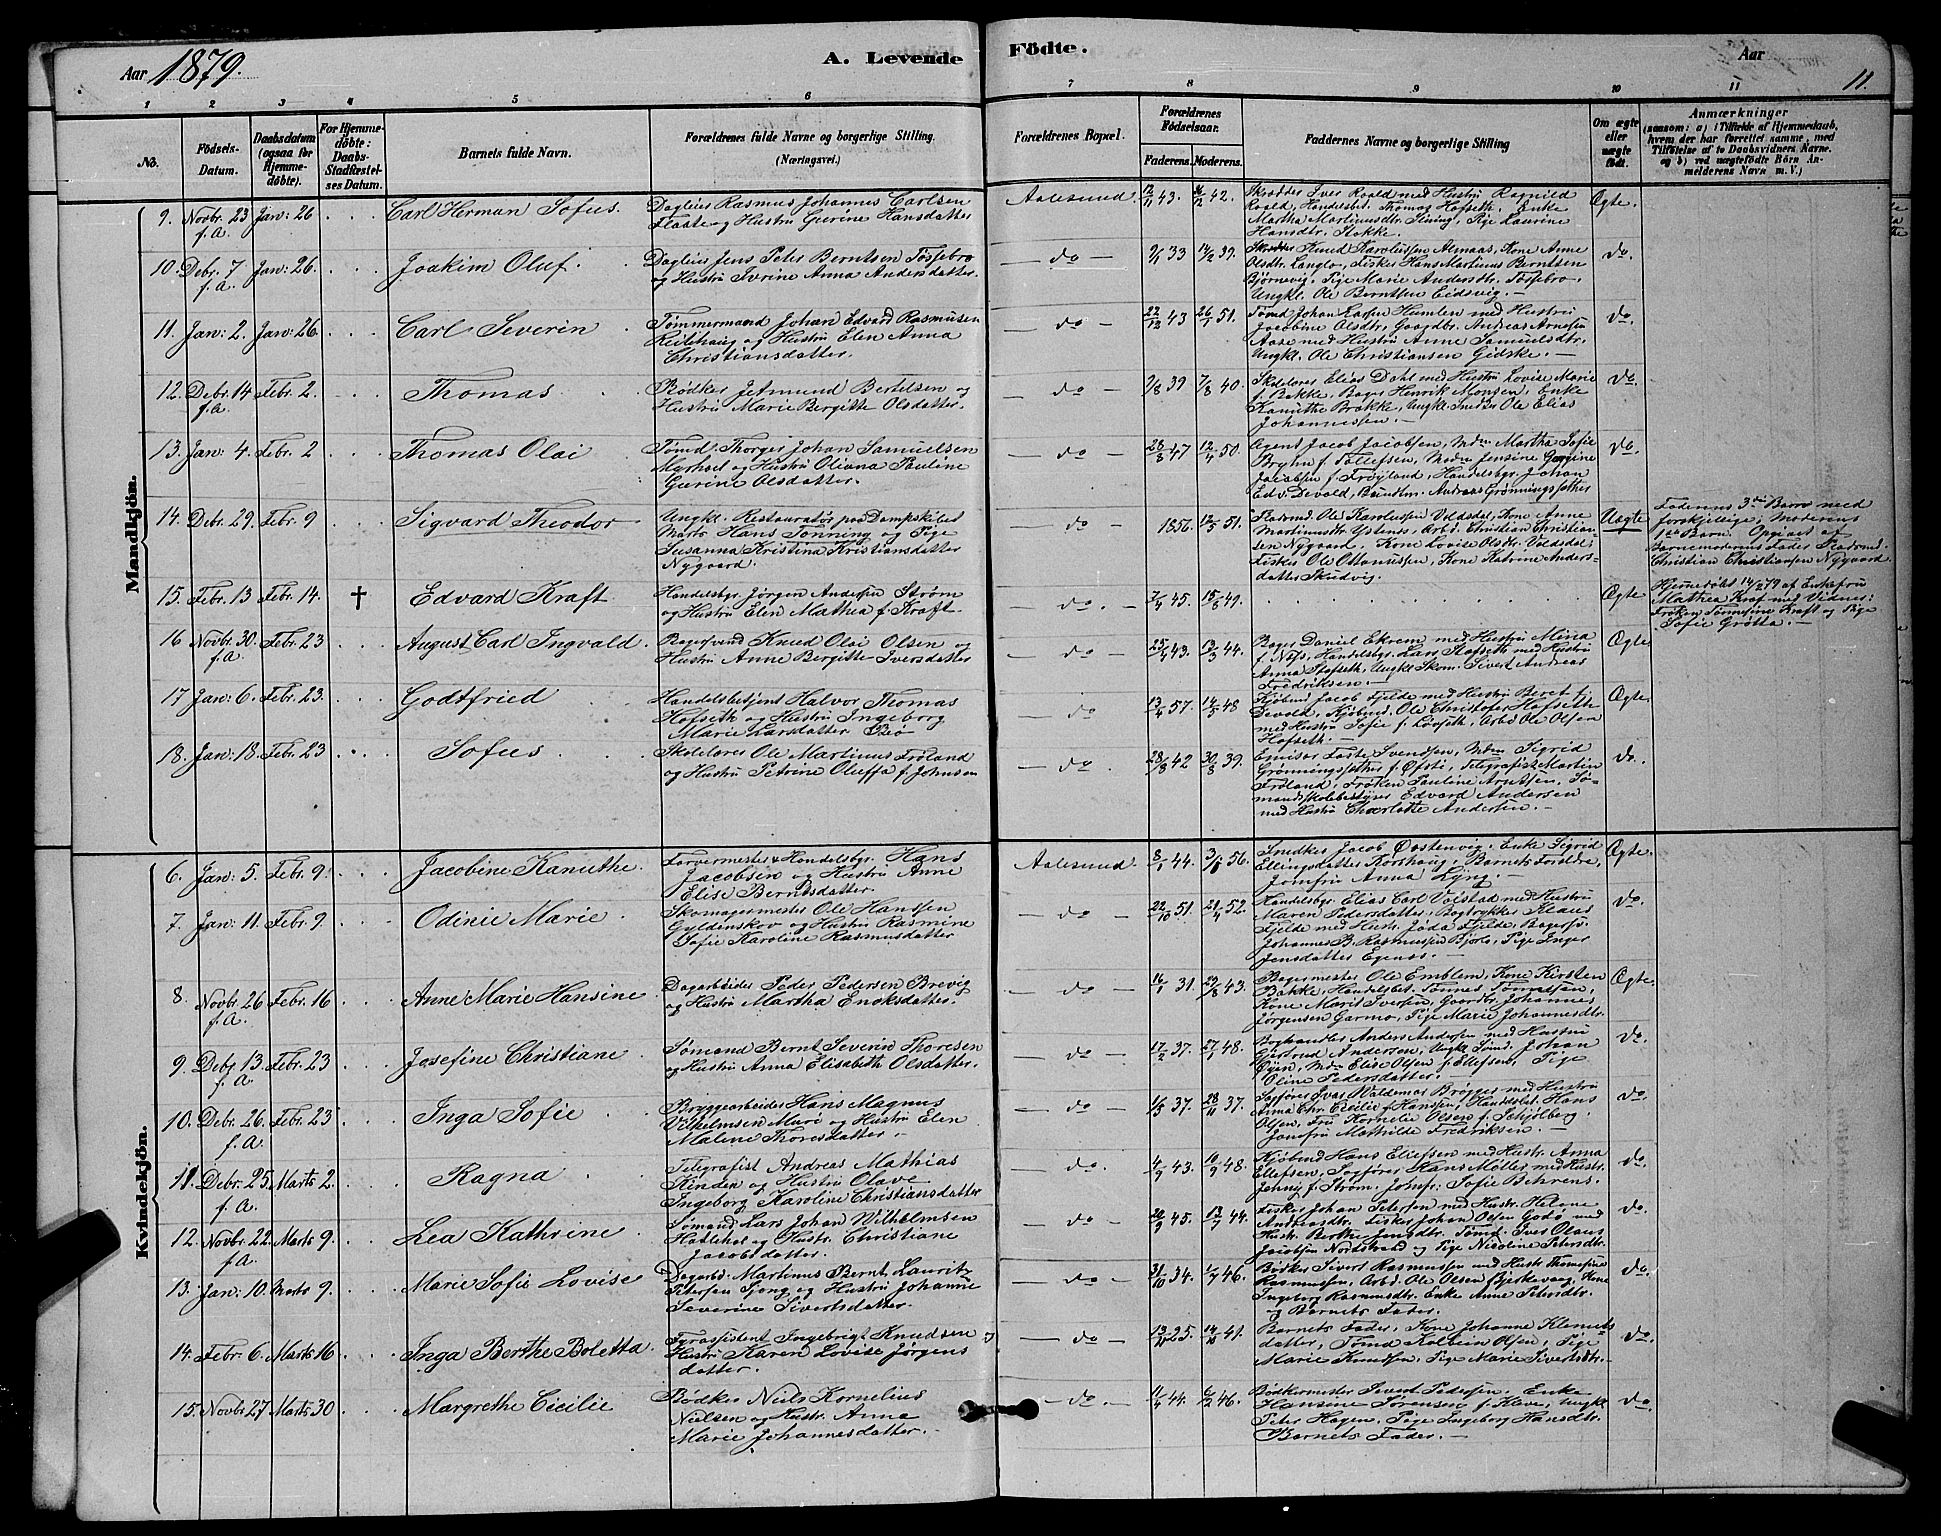 Aar 1879.
A. Levende Födte.
Aar
11.
1 2 3 4 5 6 7 8 9 10 11
No.
Födsels-Datum.
Daabsdatum (ogsaa for Hjemme-döbte).
For Hjemme-döbte: Daabs-Stadfæstel-ses Datum.
Barnets fulde Navn.
Forældrenes fulde Navne og borgerlige Stilling. (Næringsvei.)
Forældrenes Bopæl.
Forældrenes Födselsaar.
Faderens. Moderens.
Faddernes Navne og borgerlige Stilling
Om ægte eller uægte födt.
Anmærkninger
(saasom: a) i Tilfælde af Hjemmedaab,
hvem der har forrettet samme, med
Tilföielse af to Daabsvidners Navne,
og b) ved uægtefödte Börn An-
melderens Navn m. V.)
Mandkjön.
9. Novbr. 23 f.A. Jan: 26 Carl Herman Sofus.
Dagleier Rasmus Johannes Carlsen
Flaate og Hustru Gurine Hansdatter
Aalesund 12/11 43. 42.
Skrædder Iver Roald med Hustru Ragnild
Roald, Handelsbet. Thomas Hofseth. Enke
Martha Martinusdtr. Pige Laurine
Hansdtr. Stokke.
Ægte.
10. Debr. 7 f.A. Jan: 26. Joakim Oluf.
Dagleier Jens Peter Berntsen Fossebro
og Hustru Ivrine Anna Andersdatter.
do 9/1 33 14/2 39.
Knud Karolussen Kone Anne
Olsdtr. Langlo, Fisker Hans Martinus Berntsen
Bjørnevig, Pige Marie Andersdtr. Fossebro.
Ungkl. Ole Berntsen Eidsvig.
do.
11. Jan: 2. Jan: 26. Carl Severin
Tømmermand Johan Edvard Rasmussen
og Hustru Elen Anna
Christiansdatter.
do 22/12 43 26/1 51.
Tømd Johan Humlen med Hustru
Jacobine Olsdtr. Gaardbr. Andreas Arnesen
Aase med Hustru Anne Samuelsdtr.
Ungkl. Ole Christiansen Gidske.
do.
12. Debr. 14 f.A. Febr. 2. Thomas
Bødker Jetmund Bertelsen og
Hustru Marie Bergitte Olsdatter.
do 9/8 39 7/8 40.
Skolelærer Elias Dahl med Hustru Lovise Marie
f. Bakke, Bager Henrik Monsen, Enke
Kanutthe Brakke, Ungkl. Snedker Ole Elias
Johannessen.
do.
13. Jan: 4. Febr. 2 Thomas Olai
Tømd. Thorger Johan Samuelsen
Myrhol og Hustru Oliana Pauline
Gurine Olsdatter.
do 28/8 47 12/4 50.
Agent Jacob Jacobsen, Mdm Martha Sofie
Bryhn f. Tollefsen, Mdm Jensine Gurine
Jacobsen f. Frøyland, Handelsbgr. Johan
Ed. v. Devold, Andreas Grønningssæther
do.
14. Debr. 29. Febr. 9 Sigvard Theodor
Ungkl. Restauratør paa Dampskibet
Hans Tønning og Pige
Susanna Kristina Kristiansdatter
Nygaard.
do 1856 12/5 51.
Flødmd. Ole Karolussen Voldsdal, Kone Anne
Martinusdtr. Arbd. Christian Christian-
sen Nygaard. Kone Lovise Olsdtr. Voldsdal,
Fisker Ole Ottonussen, Kone Katrine Anders-
datter
Uægte
Faderens 3die Barn med
forskjellige, Moderens
1ste Barn. Opgivet af
Barnemoderens Fader
Christian Christiansen Nygaard.
15. Febr. 13 Febr. 14. † Edvard Kraft
Handelsbgr. Jørgen Andersen Strøm
og Hustru Elen Mathea f. Kraft
do. 7/4 45. 15/6 49.
Ægte
Hjemmedøbt 14/2 79 af Enkefru
Mathea Kraf med Vidner:
Frøken Tønnesine Kraft og Pige
Sofie Grøtta.
16 Novbr. 30. f.A. Febr. 23 August Carl Ingvald.
Bagersvend Knud Olai Olsen og
Hustru Anne Bergitte Iversdatter
do 25/4 43. 13/3 44.
Bager Daniel Ekrem med Hustru Mina
f. Handelsbgr. Lars Stafseth med Hustru
Anna Stafseth. Ungkl. Skom. Sivert Andreas
Fredriksen.
Ægte
17 Jan: 6. Febr. 23. Godtfried
Handelsbetjent Halvor Thomas
Hofseth og Hustru Ingeborg
Marie Larsdatter Bø
do 13/4 57. 14/3 48
Kjøbmd Jacob Fjelde med Hustru Beret f.
Devold, Kjøbmd. Ole Christofer Hofseth
med Hustru Sofie f. Løvseth, Arbd. Ole Olsen
Hofseth.
Ægte
18. Jan: 18. Febr. 23 Sofus
Skolelærer Ole Martinus Frøland
og Hustru Petrine Oluffa f. Johnsen
do. 28/8 42 30/8 39.
Emisær Faste Svendsen, Mdm Sigrid
Grønningssæther f. Øfsti, Telegrafist Martin
Frøland, Frøken Pauline Arntsen, Sø-
mandsskolebestyrer Edvard Andersen
med Hustru Charlotte Andersen.
do.
Kvindekjön.
6. Jan: 5. Febr. 9. Jacobine Kanutthe.
Farvermester & Handelsbgr. Hans
Jacobsen og Hustru Anne
Elise Berntsdatter.
Aalesund 8/1 44. 3/6 56.
Snedker Jacob Østenvig. Enke Sigrid
Ellingsdatter Korshaug. Barnets Forældre,
Jomfru Anna Lyng.
Ægte.
7. Jan: 11. Febr. 9. Odinie Marie
Skomagermester Ole Hanssen
Gyldenskov og Hustru Rasmine
Sofie Karoline Rasmusdatter
do 22/10 51. 21/4 52.
Handelsbgr. Elias Carl med Hustru
Maren Pedersdatter, Bogtrykker Klaus
Fjelde med Hustr. Jada Fjelde, Bagersv.
Johannes B. Rasmussen Pige Inger
Jensdatter
do.
8. Novbr. 26 f.A. Febr. 16 Anne Marie Hansine
Dagarbeider Peder Pedersen Brevig
og Hustru Martha Enoksdatter.
do 16/1 31. 29/8 43.
Bagermester Ole Emblem, Kone Kirsten
Bakke, Handelsbet. Tønnes Tønnessen,
Kone Marit Iversen, Gaardbr. Johannes
Jørgensen Garmo, Pige Marie Johannesdtr.
Ægte
9. Debr. 13. f.A. Febr. 23 Josefine Christiane
Sømand Bernt Severin Thoresen
og Hustru Anna Elisabeth Olsdatter.
do 17/2 37. 27/1 48.
Boghandler Anders Andersen med Hustru
Gjertrud Andersen, Ungkl. Sømd. Johan
Øyen, Mdm Elise Olsen f. Ellefsen, Pige
Oline Pedersdatter.
do.
10. Debr. 26. f.A. Febr. 23 Inga Sofie
Bryggearbeider Hans Magnus
Vilhelmsen Mure og Hustru Elen
Malene Thoresdatter.
do 16/3 37. 28/11 37.
Sagfører Ivar Waldemar Brøgger med Hustru
Anna Chr. Cecilie f. Hanssen, Handelsbet. Hans
Olsen, Fru Kornelie Olsen f. Schjølberg,
Jomfru Mathilde Fredriksen.
do.
11. Debr. 25. f.A. Marts 2. Ragna
Telegrafist Andreas Mathias
Kinden og Hustru Olave
Ingeborg Karoline Christiansdatter
do. 4/9 43. 10/9 48.
Kjøbmd Hans Ellefsen med Hustr. Anna
Ellefsen, Sagfører Hans Møller med Hustr.
Jenny f. Strøm. Jomfr: Sofie Behrens.
do.
12. Novbr. 22. f.A. Marts 9. Lea Kathrine
Sømand Lars Johan Wilhelmsen
og Hustr. Christiane
Jacobsdatter.
do 20/9 45. 13/7 44.
Fisker Johan Petersen med Hustr. Helene
Andreasdtr. Fisker Johan Olsen Godø med
Hustr. Berthe Jensdtr. Tømd. Iver Olaus
Jacobsen Nordstrand og Pige Nicoline Petersdtr.
do.
13. Jan: 10. Marts 9. Marie Sofie Lovise
Dagarbd. Martinus Bernt Lauritz
Petersen Sjong og Hustru Johanne
Severine Sivertsdatter.
do 31/10 34. 1/7 46.
Bødker Sivert Rasmussen med Hustr. Thomasine
Rasmussen, Arbd. Ole Olsen Bjerkevaag, Kone
Ingeborg Rasmusdtr. Enke Anne Petersdtr.
og Barnets Fader.
do.
14. Febr. 6. Marts 16 Inga Berthe Boletta.
Fyrassistent Ingebrigt Knudsen og
Hustru Karen Lovise Jørgens
datter.
do 13/10 25. 14/10 41.
Barnets Fader, Kone Johanne Klemets-
datter, Tømd Kolbein Olsen, Pige
Marie Knudsen, Pige Marie Sivertsdtr.
do.
15. Novbr. 27. Marts 30 Margrethe Cicilie
Bødker Niels Kornelius
Nielsen og Hustr. Anna
Marie Johannesdatter.
do. 11/4 44. 6/12 46.
Bødkermester Sivert Pedersen. Enke
Hansine Sørensen f. Kleve, Ungkl.
Peter Hagen, Pige Ingeborg Hansdtr.
Barnets Fader.
do.